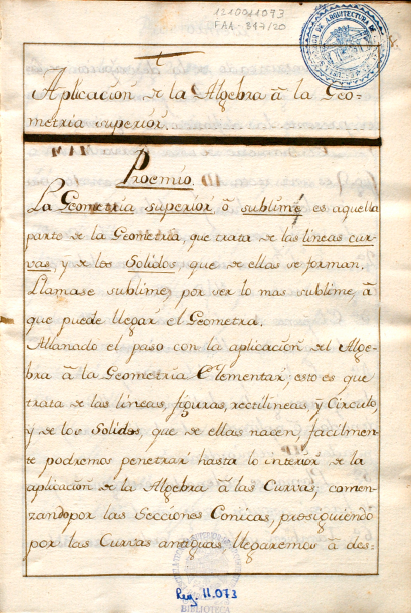 1210011073
FAA-847/20
Aplicacion de la Algebra â la Geo-
metria superior.
Proemio.
La Geometria superior, ô sublime es aquella
parte de la Geometria, que trata de las lineas cur-
vas, y de los Solidos, que de ellas se forman.
Llamase sublime, por ser lo mas sublime, â
que puede llegar el Geometra.
Allanado el paso con la aplicacion del Alge-
bra â la Geometria Elementar; esto es que
trata de las lineas, figuras, rectilineas, y Circulo,
y de los Solidos, que de ellas nacen, facilmen-
te podremos penetrar hasta lo interior de la
aplicacion de la Algebra â las Curvas; comen-
zando por las Secciones Conicas, prosiguiendo
por las Curvas antiguas llegaremos â des-
Reg. 11.073
BIBLIOTECA